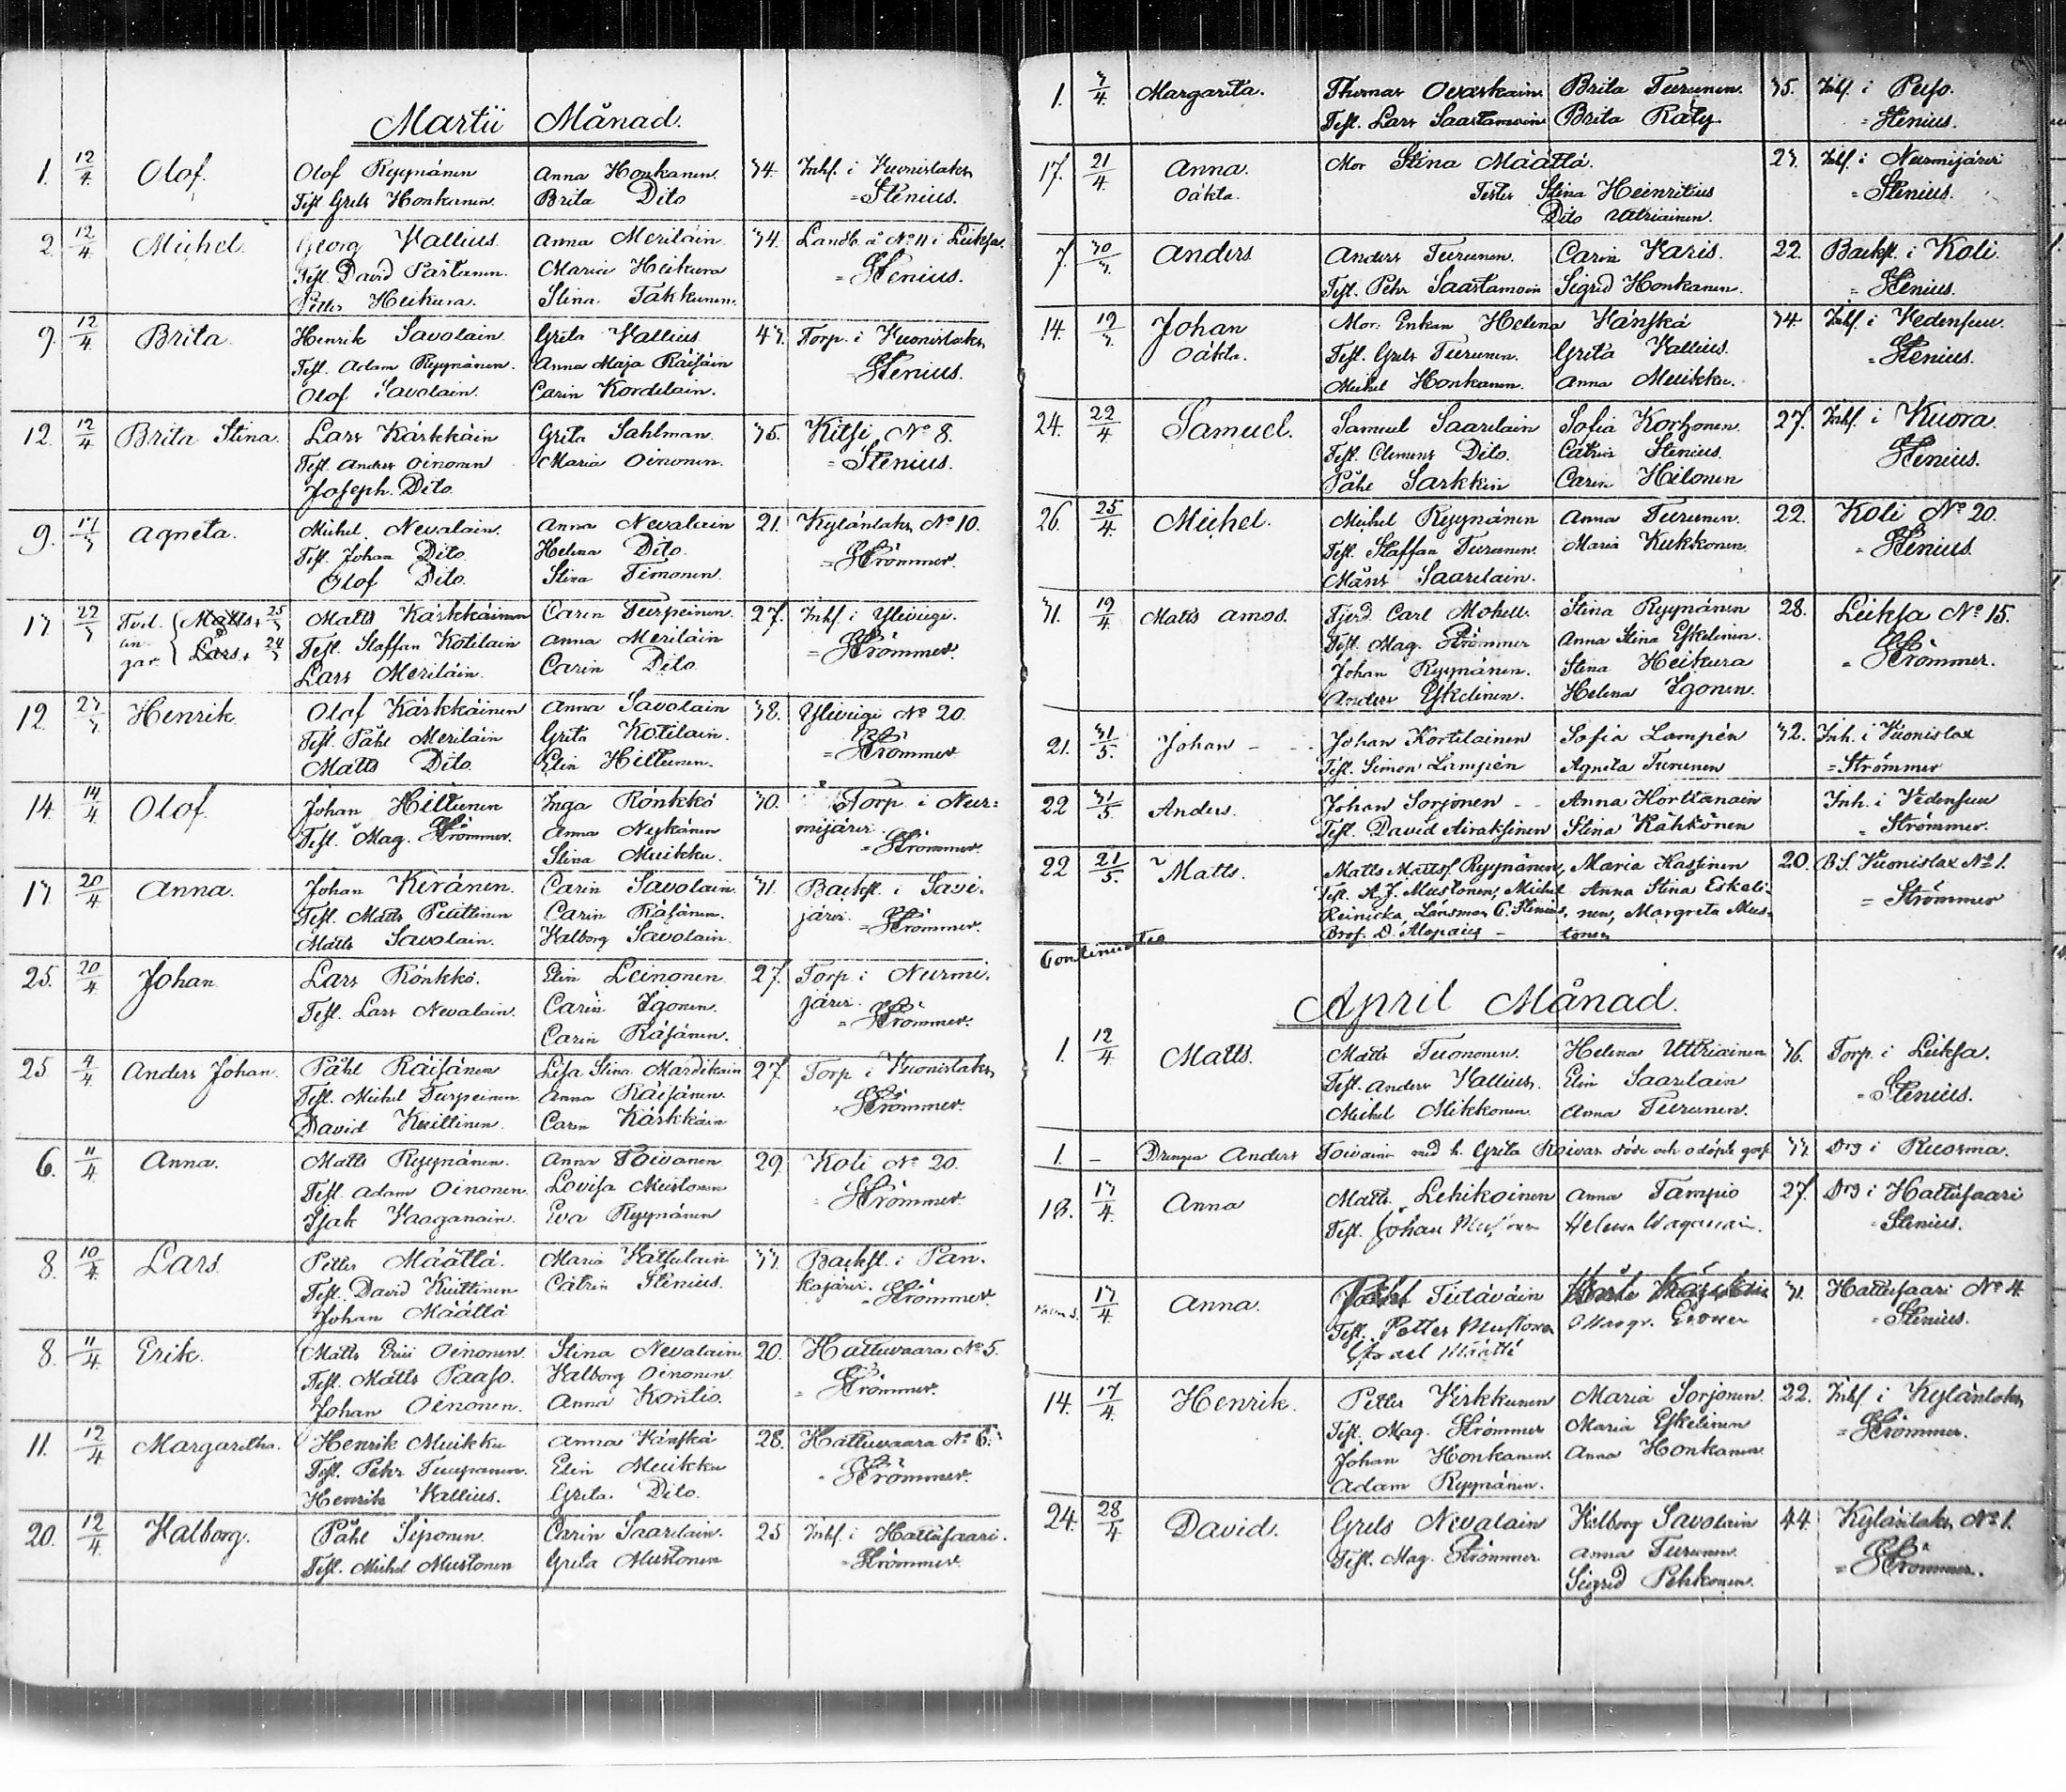 Martii Månad.
1. 12/4 Olof. Olof Ryynänen Anna Honkanen. 34. Inhs. i Vuonislaks
Test. Grels Honkanen. Brita Dito =Stenius.
2. 12/4 Michel. Georg Vallius. Anna Meriläin 34. Landb. å No 11 i Lieksa.
Test. David Partanen. Maria Heikura =Stenius.
Petter Heikura. Stina Takkunen.
9. 12/4 Brita. Henrik Savolain. Greta Vallius 43. Torp. i Vuonislaks
Test. Adam Ryynänen. Anna Maja Räisäin =Stenius.
Olof Savolain. Carin Kordelain.
12. 12/4 Brita Stina. Lars Kärkkäin Greta Sahlman. 35. Kitsi No 8.
Test. Anders Oinonen Maria Oinonen. =Stenius.
Joseph Dito.
9. 17/3 Agneta. Michel. Nevalain. Anna Nevalain 21. Kylänlaks No 10.
Test. Johan Dito. Helena Dito. =Strömmer.
Olof Dito. Stina Timonen.
13 22/3 Tvil. Matts + 25/3 Matts Kärkkäinen Carin Turpeinen. 27. Inhs. i Ylivigi.
lin- Lars + 24/3 Test. Staffan Kotilain Anna Meriläin =Strömmer.
gar. Lars Meriläin. Carin Dito.
12. 23/3 Henrik. Olof Kärkkäinen Anna Savolain 38. Ylivigi No 20.
Test. Påhl Meriläin Greta Kotilain. =Strömmer
Matts Dito. Elin Hiltunen.
14. 14/4 Olof. Johan Hiltunen Inga Rönkkö 30. Torp. i Nur=
Test. Mag. Strömmer. Anna Nykänen mijärvi.
Stina Muikku. =Strömmer.
13. 20/4 Anna. Johan Kiränen. Carin Savolain. 31. Backst. i Savi-
Test. Matts Puittinen Carin Räsänen. järvi.
Matts Savolain. Valborg Savolain. =Strömmer.
25. 20/4 Johan Lars Rönkkö. Elin Leinonen. 27. Torp. i Nurmi-
Test. Lars Nevalain. Carin Igonen. järvi.
Carin Räsänen. =Strömmer.
25 4/4 Anders Johan. Påhl Räisänen Lisa Stina Mardikain 27. Torp i Vuonislaks
Test. Michel Turpeinen. Anna Räisänen. =Strömmer.
David Kuittinen. Carin Kärkkäin
6. 11/4 Anna. Matts Ryynänen. Anna Toivanen 29. Koli No 20.
Test. Adam Oinonen. Lovisa Mustonen =Strömmer
Isak Vaaganain. Eva Ryynänen
8. 10/4 Lars Petter Määttä. Maria Vattulain 33. Backst. i Pan-
Test. David Kuittinen Catrin Stenius. kajärvi.
Johan Määttä =Strömmer.
8. 11/4 Erik. Matts Oinonen. Stina Nevalain 20. Hattuvaara No 5.
Test. Matts Paaso. Valborg Oinonen. =Strömmer.
Johan Oinonen. Anna Kontio.
11. 12/4 Margaretha. Henrik Muikku Anna Vänskä 28. Hattuvaara No 6.
Test. Pehr Elin Muikku =Strömmer.
Henrik Vallius. Greta. Dito.
20. 12/4 Valborg. Påhl Siponen. Carin Saarelain. 25 Inhs. i Hattusaari.
Test. Michel Mustonen Greta Mustonen =Strömmer.
1. 3/4 Margareta. Thomas Ovaskain. Brita Turunen. 35. Inhs. i Puso.
Test. Lars Saastamoin Brita Räty. =Stenius.
17. 21/4 Anna. Mor Stina Määttä. 23. Inhs. i Nurmijärvi
Oäkta. Testes Stina Heinritius =Stenius.
Dito Uttriainen.
7. 30/3 Anders Anders Turunen. Carin Varis. 22. Backst. i Koli.
Test. Pehr Saastamoin Sigrid Honkanen. =Stenius.
14. 19/3 Johan Mor: Enkan Helena Vänskä 34. Inhs. i Vedensuu.
Oäkta. Test. Grels Turunen. Greta Vallius. =Stenius.
Michel Honkanen. Anna Muikku.
24. 22/4 Samuel. Samuel Saarelain Sofia Korhonen. 27. Inhs. i Kuora.
Test. Clemens Dito. Catrin Stenius. Stenius.
Påhl Sarkkin Carin Hilonen
26. 25/4 Michel. Michel Ryynänen Anna Turunen. 22. Koli No 20.
Test. Staffan Turunen. Maria Kukkonen. =Stenius.
Måns Saarelain.
31. 19/4 Matts Amos. Fjerd. Carl Mohell. Stina Ryynänen 28. Lieksa No 15.
Test. Mag. Strömmer Anna Stina Eskelinen. =Strömmer.
Johan Ryynänen. Stina Heikura
Anders Eskelinen. Helena Igonen.
21. 31/5. Johan - Johan Kortelainen Sofia Lampén 32. Inh. i Vuonislax
Test. Simon Lampén Agneta Turunen =Strömmer
22 31/5 Anders. Johan Sorjonen - - Anna Horttanain Inh. i Vedensuu
Test. David Airaksinen Stina Kähkönen =Strömmer.
22 21/5. Matts. Matts Mattss. Ryynänen, Maria Kastinen 20. B.S. Vuonislax No 1.
Test. A.J. Mustonen, Michel Anna Stina Eskeli- =Strömmer
Reinicka, Länsman C. Stenius, nen, Margreta Mus-
Prof. D. Alopaius - tonen
Continuatio
April Månad.
1. 12/4 Matts. Matts Tuononen. Helena Uttriainen 36. Torp. i Lieksa.
Test. Anders Vallius. Elin Saarelain =Stenius.
Michel Mikkonen. Anna Turunen.
1. - Drengen Anders Toivain med h. Greta Roivas döde och odöpte goss 33. Drg i Ruosma.
18. 13/4 Anna Matts. Lehikoinen Anna Tampio 27. Drg i Hattusaari
Test. Johan Mustonen Helena =Stenius.
13/4 Anna. Tiitäväin 31. Hattusaari No 4
Test. Petter Mustonen Margr. =Stenius.
Määttä
14. 17/4 Henrik. Petter Virkkunen Maria Sorjonen. 22. Inhs. i Kylänlaks
Test. Mag. Strömmer Maria Eskelinen =Strömmer.
Johan Honkanen. Anna Honkanen.
Adam Ryynänen.
24. 28/4 David. Grels Nevalain Valborg Savolain 44. Kylänlaks No 1.
Test. Mag. Strömmer. Anna Turunen. =Strömmer.
Sigrid Pehkonen.